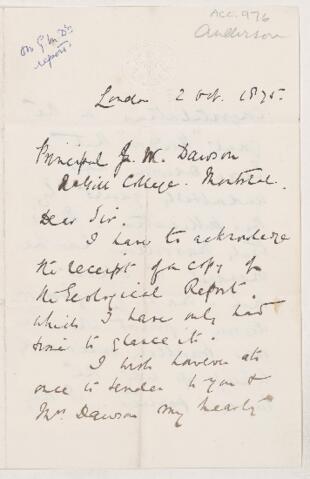 ACC. 976
Anderson
on G. M. D's
report.
London 2 Oct. 1875.
Principal J. W. Dawson
McGill College. Montreal.
Dear Sir.
I have to acknowledge
the receipt of a copy of
the Geological Report.
which I have only had
time to glance at.
I wish however at
once to tender to you &
Mrs Dawson my hearty